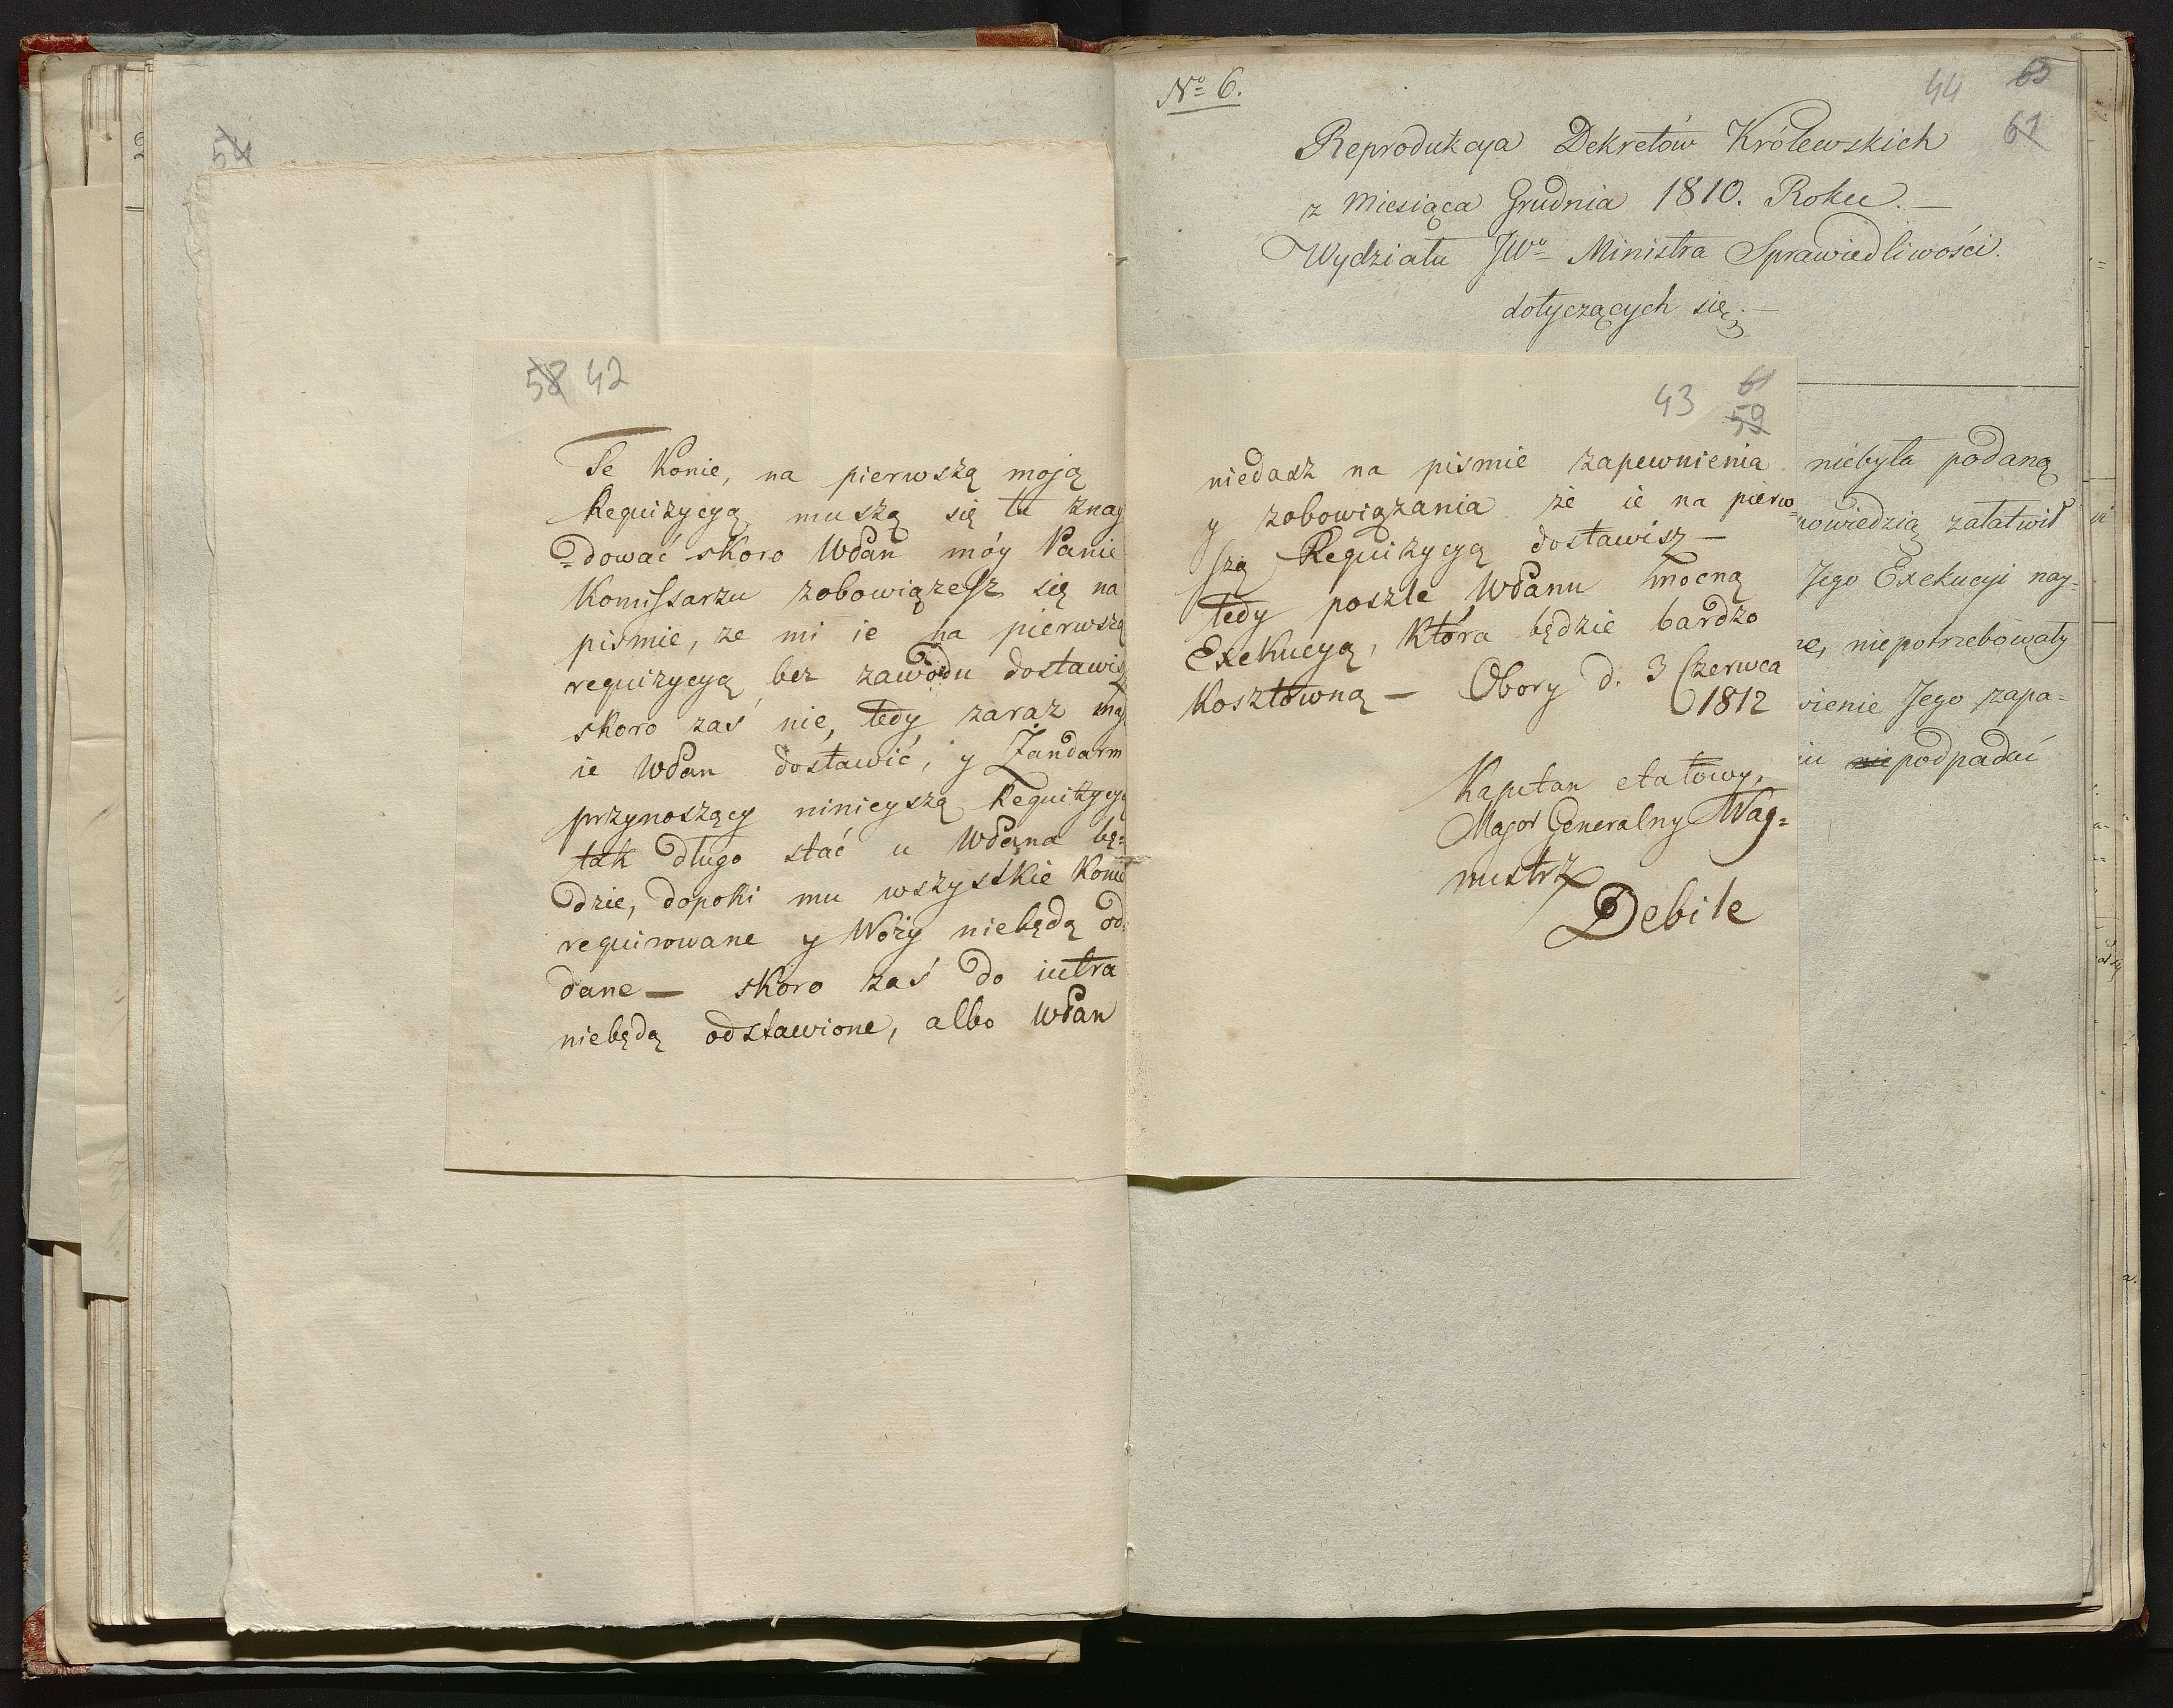 54
58 42
Te Konie, na pierwszą moją
Requizycyą muszą się tu znay
=dować skoro WPan móy Panie
Komissarzu zobowiążesz się na
pismie, ze mi ie na pierwszą
requizycyą bez zawodu dostawisz
skoro zaś nie, tedy zaraz masz
ie WPan dostawić, y Żandarm
przynoszący ninieyszą Requizycyą
tak długo stać u WPana bę=
dzie, dopoki mu wszystkie Konie
requirowane y Wozy niebędą od=
dane — skoro zaś do iutra
niebędą odstawione, albo WPan
43 61
59
niedasz na pismie zapewnienia
y zobowiązania że ie na pierw=
szą Requizycyą dostawisz —
tedy poszle WPanu mocną
Exekucyą, Która będzie bardzo
Kosztowną — Obory d. 3 Czerwca
1812
Kapitan etatowy,
Major Generalny Wag=
mistrz
Debile
No 6.
44 65
61
Reprodukcya Dekretów Królewskich
z Miesiąca Grudnia 1810. Roku. —
Wydziału JWo Ministra Sprawiedliwości.
dotyczących się. —
niebyła podaną
powiedzią załatwił
Jego Exekucyi nay=
ne, niepotrzebowały
wienie Jego zapa=
iu nie podpadać